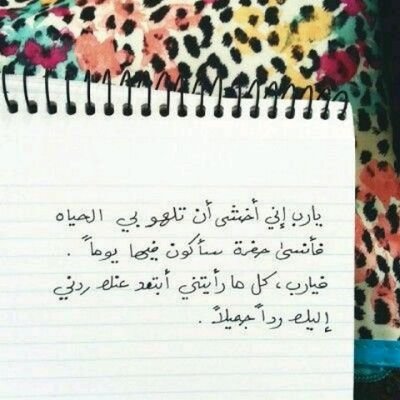 يارب إني أخشى أن تلهو بي الحياه
فأنسىٰ حفرة سأكون فيها يوماً .
فيارب، كل ما رأيتني أبتعد عنك ردني
إليك رداً جميلاً .